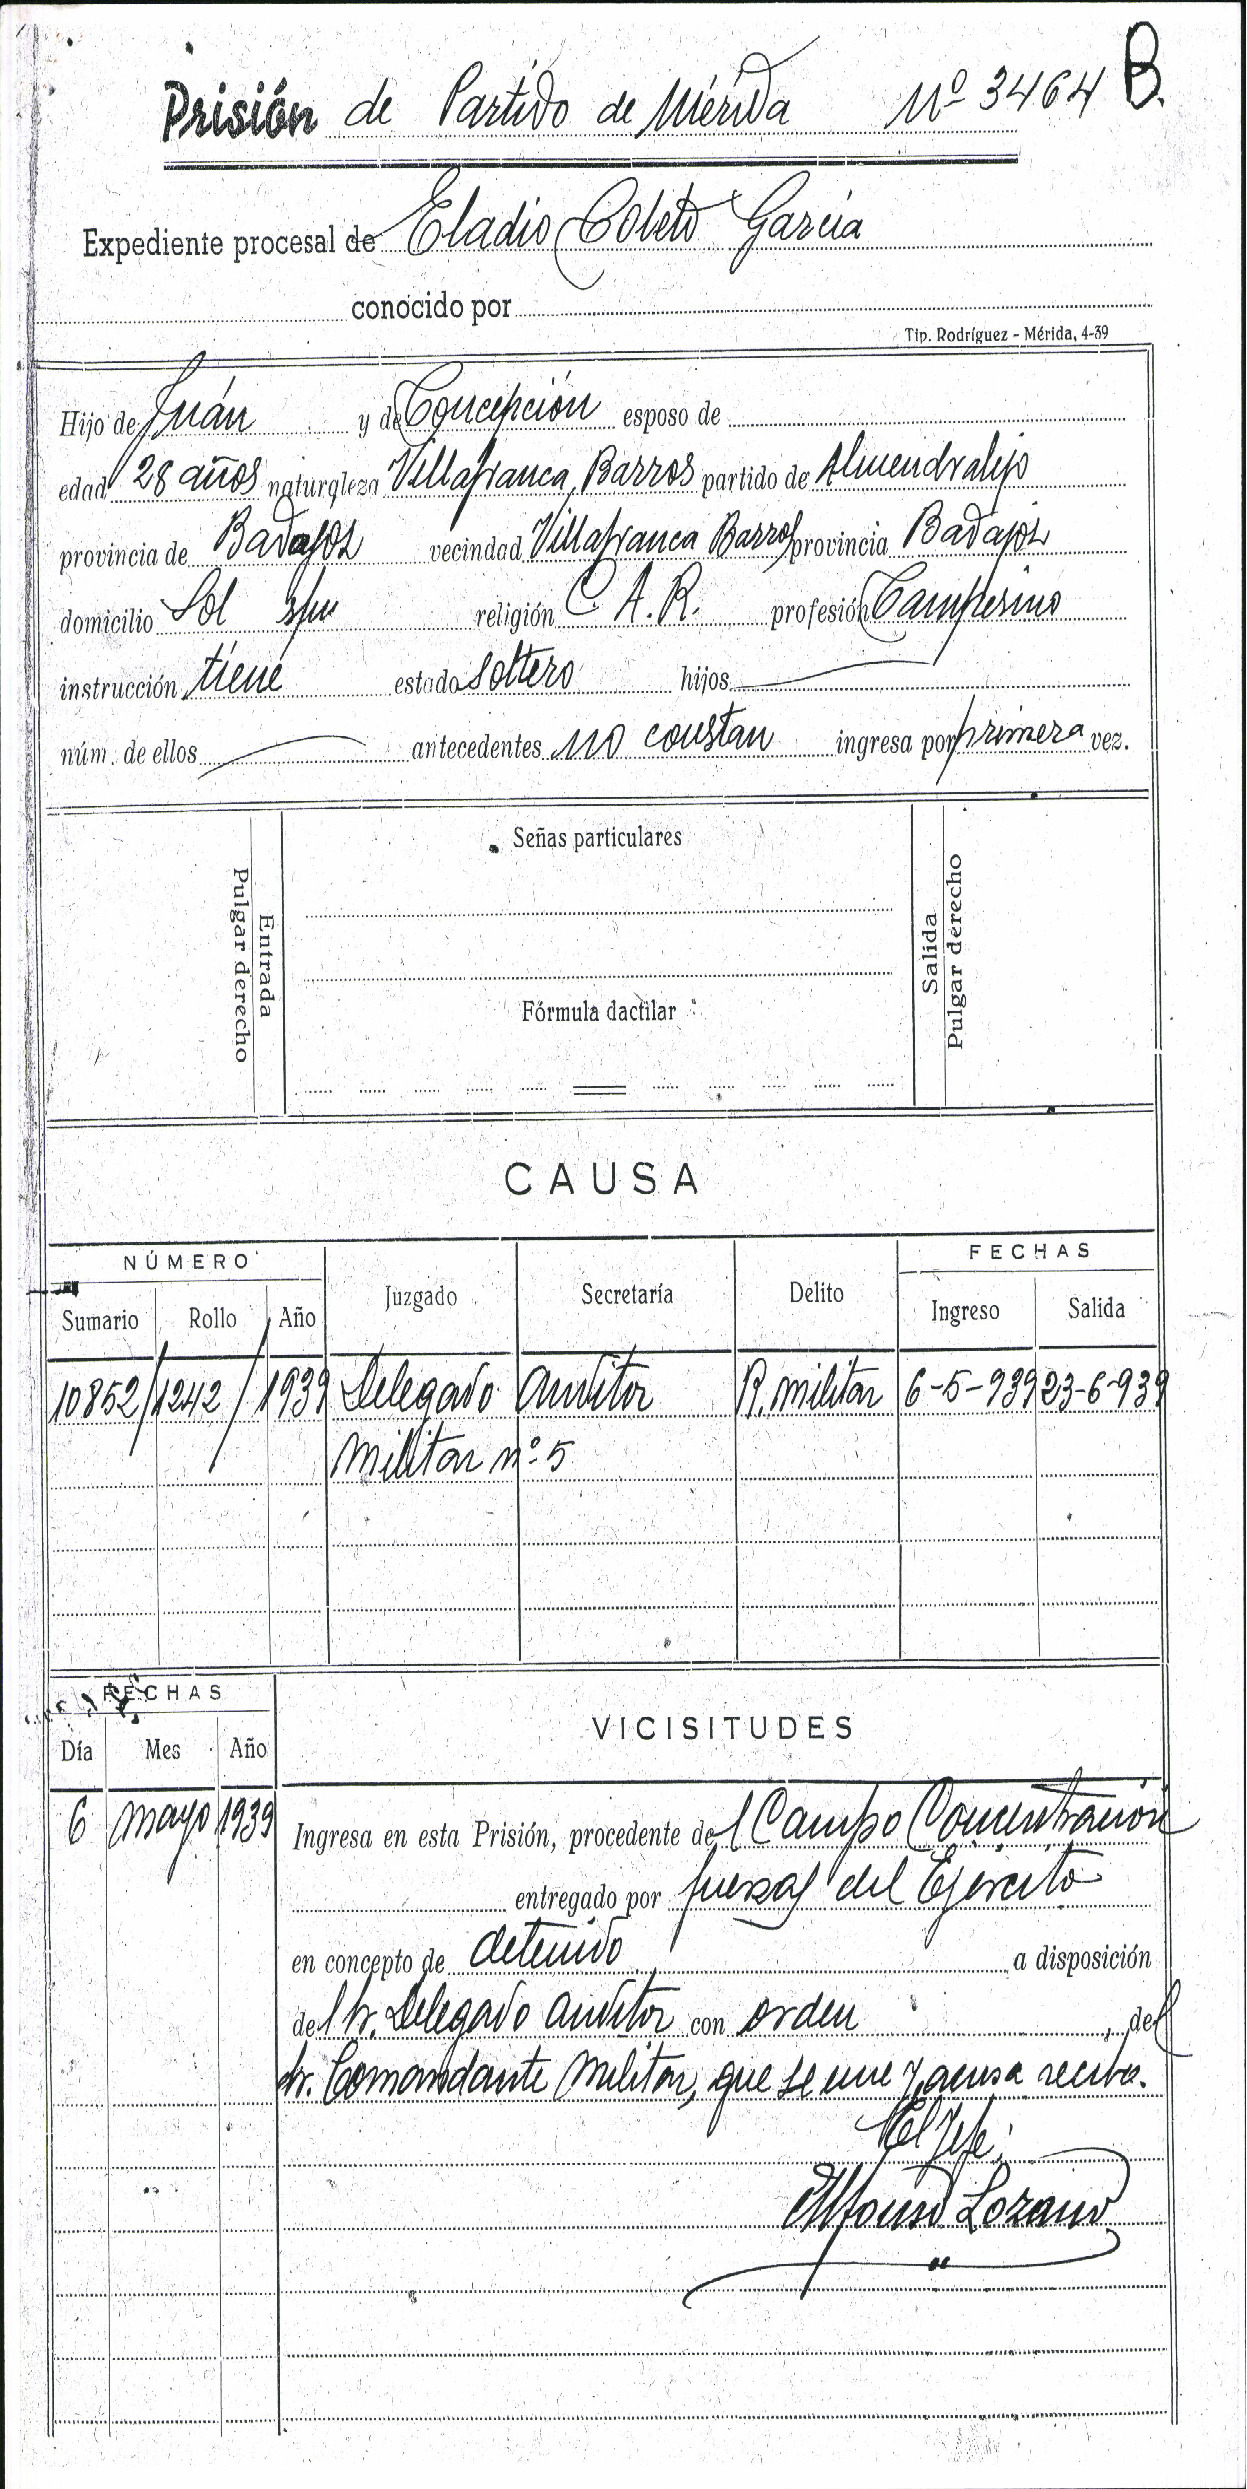 Prisión de Partido de Mérida Nº 3464 B.
Expediente procesal de Eladio Coleto García
conocido por
Tip. Rodríguez - Mérida, 4-39
Hijo de Juán y de Concepción esposo de
edad 28 años naturaleza Villafranca Barros partido de Almendralejo
provincia de Badajoz vecindad Villafranca Barros provincia Badajoz
domicilio Sol s/n religión C. A. R. profesión Campesino
instrucción tiene estado soltero hijos
núm. de ellos antecedentes no constan ingresa por primera vez.
Señas particulares
Entrada
Pulgar derecho
Salida
Pulgar derecho
Fórmula dactilar
CAUSA
NÚMERO Juzgado Secretaría Delito FECHAS
Sumario Rollo Año Ingreso Salida
10852/1242/1939 Delegado Auditor R. militar 6-5-939 23-6-939
Militar nº 5
FECHAS VICISITUDES
Día Mes Año
6 mayo 1939 Ingresa en esta Prisión, procedente del Campo Concentración
entregado por fuerzas del Ejército
en concepto de detenido a disposición
del Sr. Delegado Auditor con orden, del
Sr. Comandante Militar, que se une y acusa recibo.
El Jefe:
Alfonso Lozano